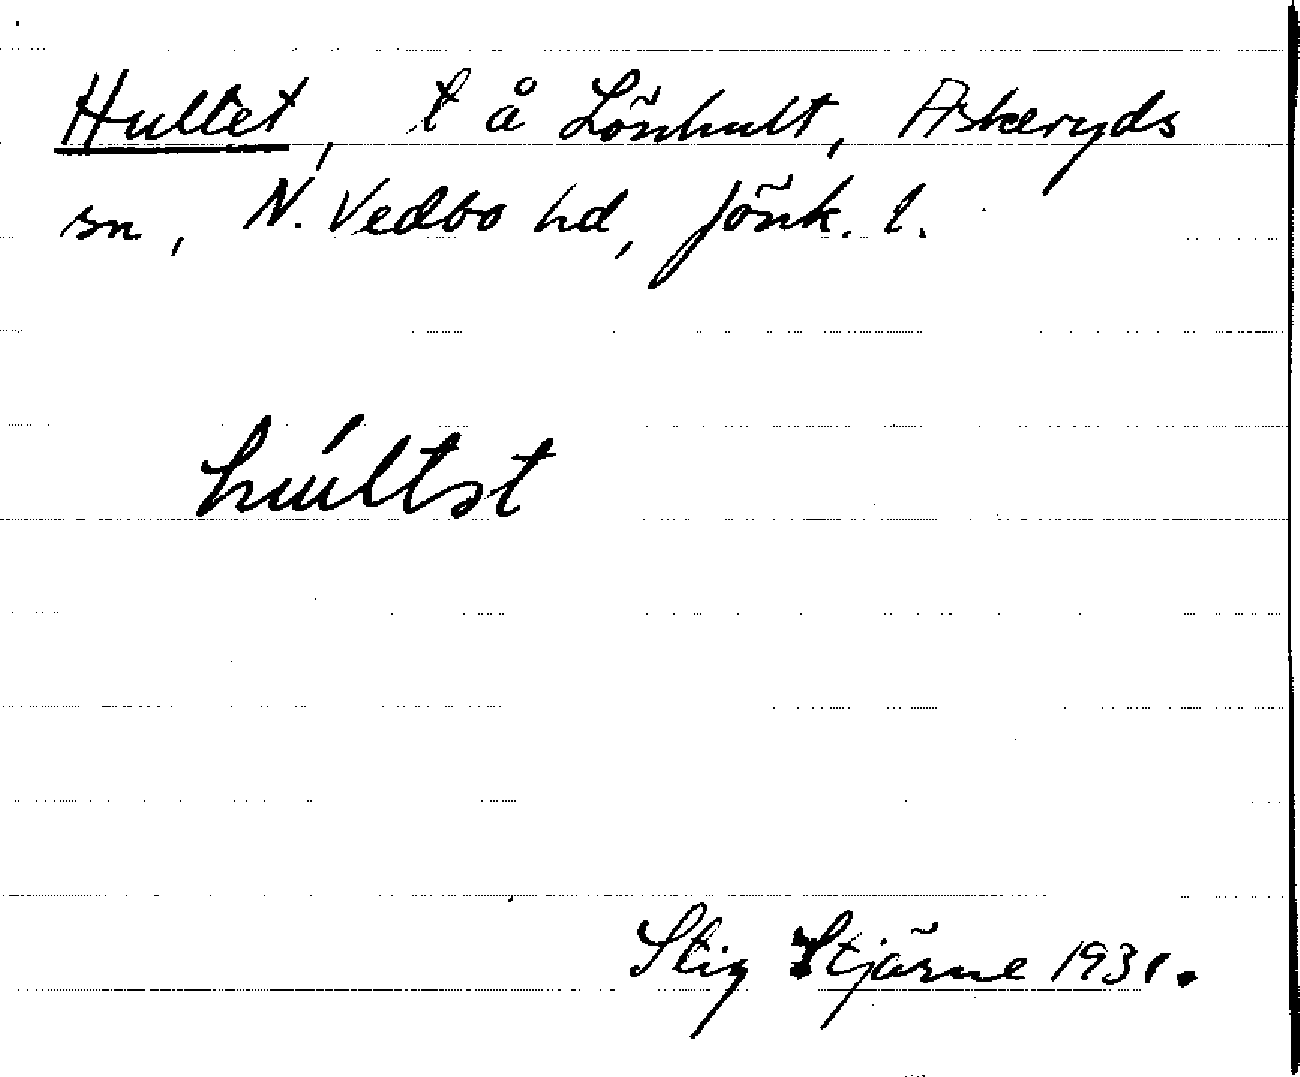 Hultet, t å Lönhult, Askeryds
sn, N. Vedbo hd, Jönk. l.
húltət
Stig Stjärne 1931.